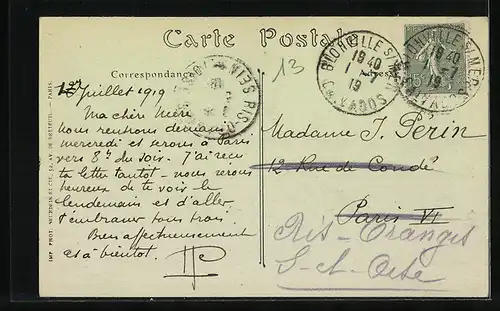 Carte Postale
Correspondance
Adresse
13
1er Juillet 1919
Ma chère Mère
Nous rentrons demain
mercredi et serons à Paris
vers 8h du soir. J'ai reçu
ta lettre tantôt - nous serons
heureux de te voir le
lendemain et d'aller
t'embrasser tous trois.
Bien affectueusement
et à bientôt.
Madame J. Perin
12 Rue de Condé
Paris VI
Ris-Orangis
S-et-Oise
BLONVILLE S MER
19 40
1 -7
19
CALVADOS
19 40
-7
19
15
RIS-
SEINE
IMP. PHOT. NEURDEIN ET CIE, 52, AV. DE BRETEUIL - PARIS.